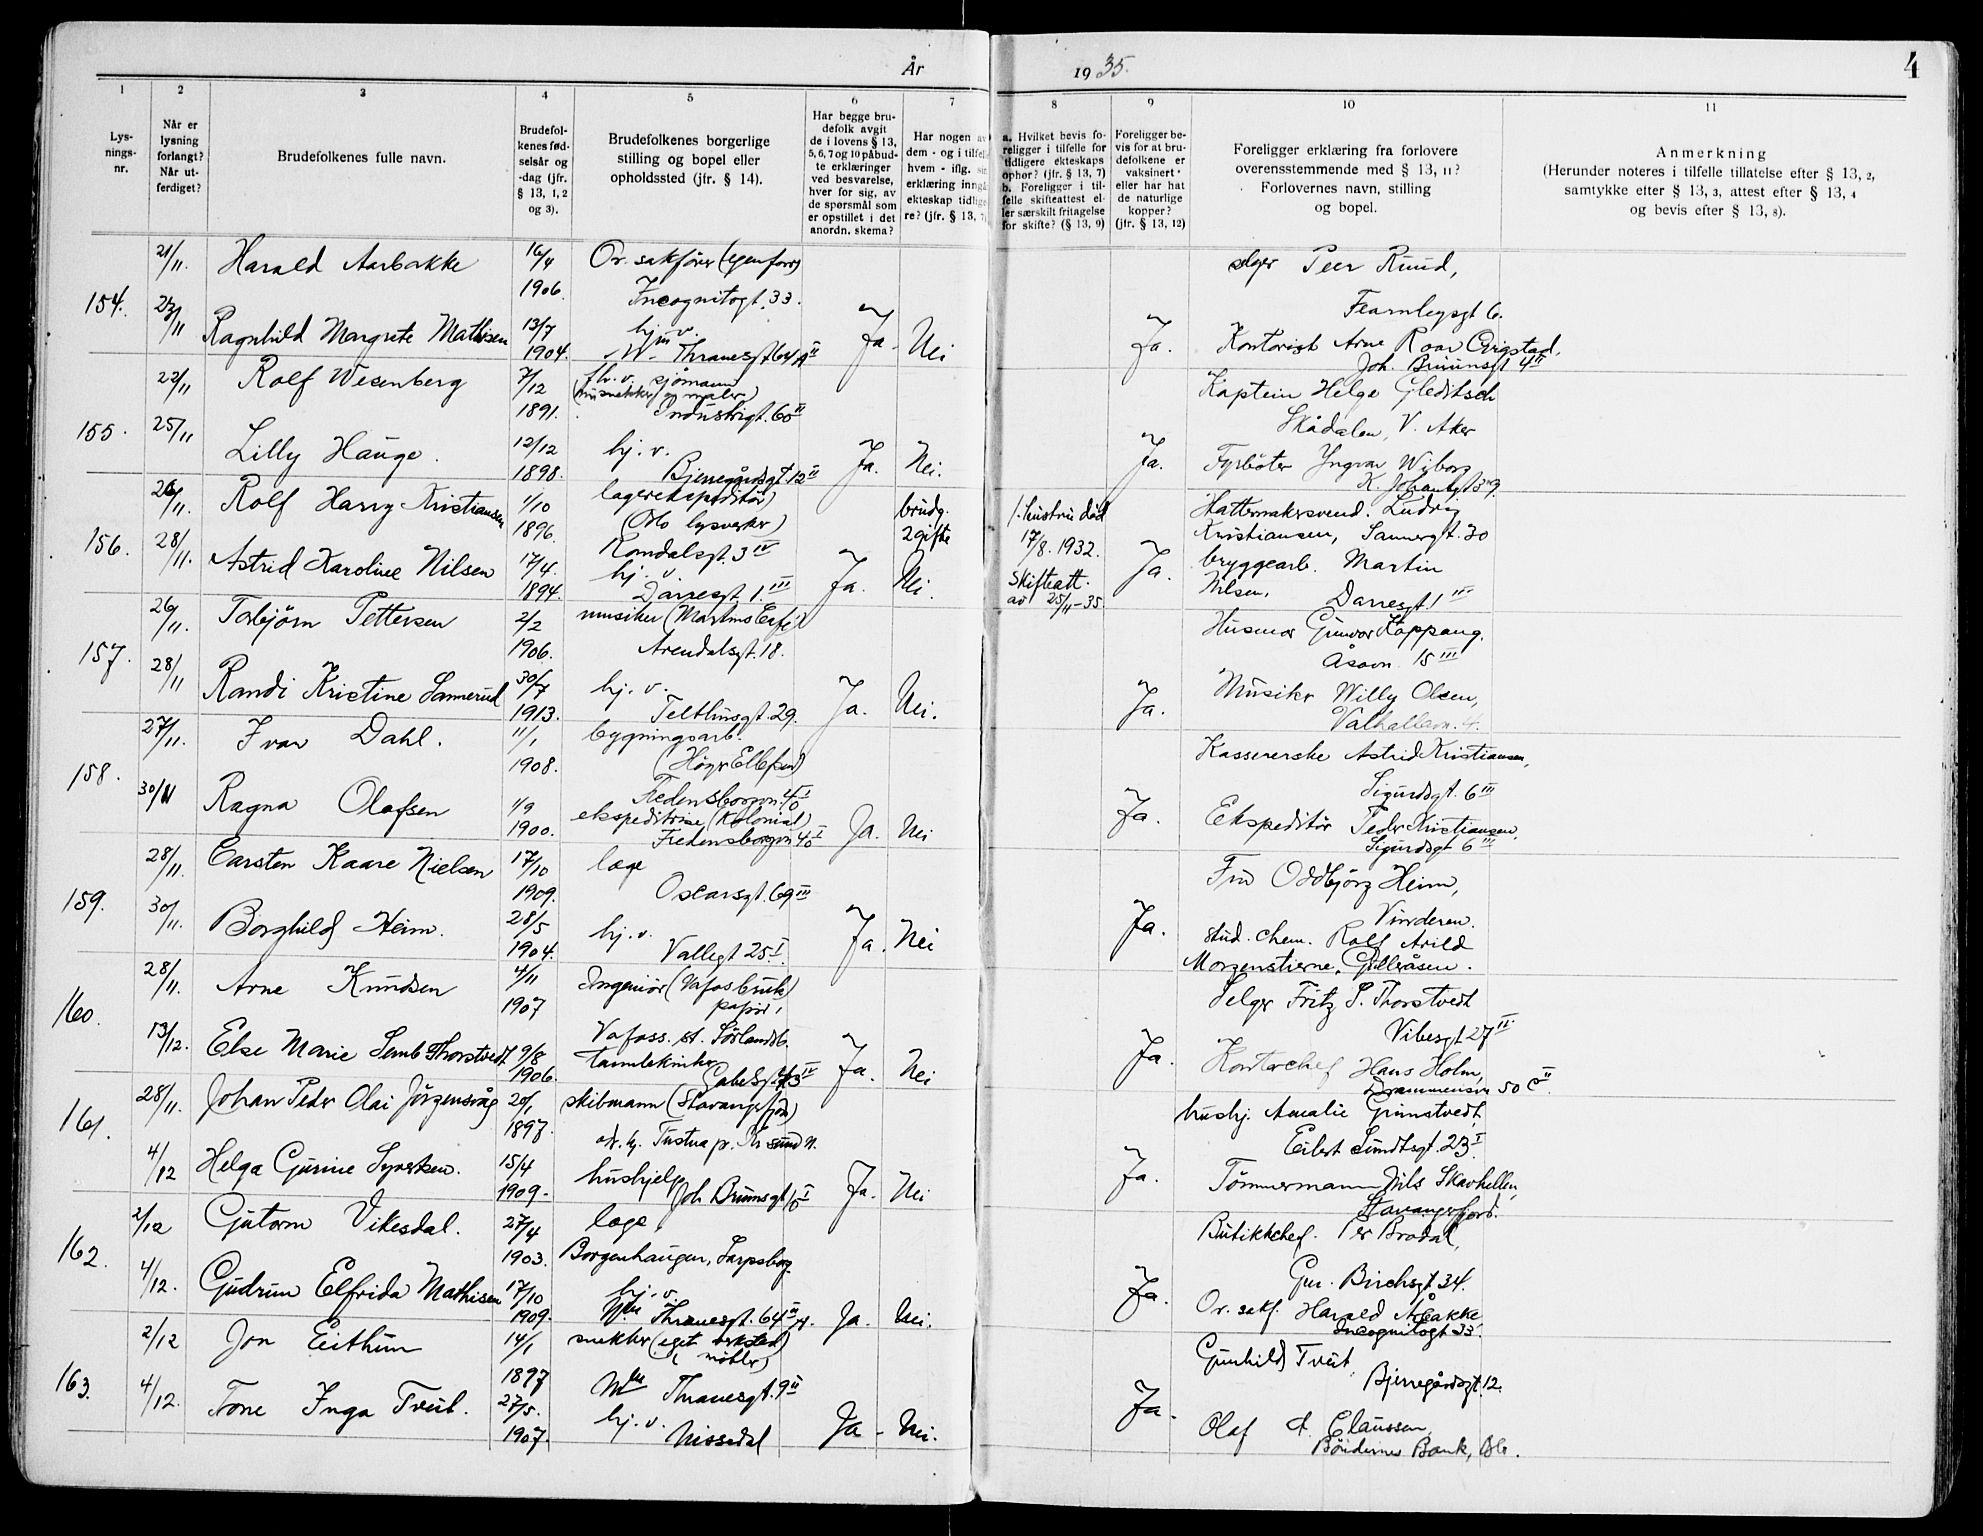 År 1935.
4
1 2 3 4 5 6 7 8 9 10 11
Lys-
nings-
nr.
Når er
lysning
forlangt?
Når ut-
ferdiget?
Brudefolkenes fulle navn.
Brudefol-
kenes fød-
selsår og
-dag (jfr.
§ 13, 1, 2
og 3).
Brudefolkenes borgerlige
stilling og bopel eller
opholdssted (jfr. § 14).
Har begge bru-
defolk avgit
de i lovens § 13,
5, 6, 7 og 10 påbud-
te erklæringer
ved besvarelse,
hver for sig, av
de spørsmål som
er opstillet i det
anordn. skema?
Har nogen av
dem - og i tilfelle
hvem - iflg. sin
erklæring inngå
ekteskap tidlige
re? (jfr. § 13, 7)
a. Hvilket bevis fo-
religger i tilfelle for
tidligere ekteskaps
ophør? (jfr. § 13, 7)
b. Foreligger i til-
felle skifteattest el-
ler særskilt fritagelse
for skifte? (§ 13, 9)
Foreligger be-
vis for at bru-
defolkene er
vaksinert
eller har hat
de naturlige
kopper?
(jfr. § 13, 12)
Foreligger erklæring fra forlovere
overensstemmende med § 13, 11?
Forlovernes navn, stilling
og bopel.
Anmerkning
(Herunder noteres i tilfelle tillatelse efter § 13, 2,
samtykke efter § 13, 3, attest efter § 13, 4
og bevis efter § 13, 8).
154. 21/11. Harald Aarbakke 16/4 1906. Or. sakfører (egen forr)
Incognitogt. 33.
selger Peer Ruud,
Fearnleysgt 6.
23/11 Ragnhild Margrete Mathisen 13/7 1904. hj. v.
M. Thranesgt 64 A II Ja. Nei Ja. Kontorist Arne Roar Grigstad,
Joh. Bruunsgt 4 II
155. 22/11 Rolf Wesenberg 7/12 1891. fhv. v. sjömann
Industrigt. 60 II
Kaptein Helge Gleditsch
Skådalen, V. Aker
25/11 Lilly Hauge. 12/12 1898. hj. v.
Bjerregårdsgt 12 II Ja. Nei. Ja. Fyrböter Yngvar Wiborg
K. Johansgt 39.
156. 26/11. Rolf Harry Kristiansen 1/10 1896. lagerekspeditör)
(Oslo lysverker)
Romdalsgt. 3 IV
brudg.
2 gifte
/. hustru död
17/8. 1932.
skifteatt.
av 25/11-35.
Hattemakersvend. Ludvig
Kristiansen, Sannergt. 30
28/11. Astrid Karoline Nilsen 17/4. 1894. hj. v.
Darresgt. 1. III Ja. Nei. Ja. bryggearb. Martin
Nilsen, Darresgt. 1 III
157. 26/11. Torbjörn Pettersen 2/2 1906. musiker (Martins Café)
Arendalsgt. 18.
Husmor Gunvor Koppang.
Åsavn. 15 III
28/11 Randi Kristine Sannerud 30/7 1913. hj. v.
Telthusgt. 29. Ja. Nei. Ja. Musiker Willy Olsen,
Valhallavn. 4.
158. 27/11. Ivar Dahl. 11/1 1908. bygningsarb.
(Höyer Ellefsen)
Fredensborgvn. 40 I
Kassererske Astrid Kristiansen,
Sigurdsgt. 6 III
30/11 Ragna Olafsen 1/9 1900. ekspeditrise (Kolonial)
Fredensborgvn 40 I Ja. Nei Ja. Ekspeditör Peder Kristiansen.
Sigurdsgt 6 III
159. 28/11. Carsten Kaare Nielsen 17/10 1909. læge
Oscarsgt. 69 III
Fru Oddbjörg Heim,
Vinderen.
30/11. Borghild Heim. 28/5 1904. hj. v.
Vallegt 25 I. Ja. Nei Ja. stud. chem. Rolf Arild
Morgenstierne, Gulleråsen.
160. 28/11. Arne Knudsen 4/11 1907 Ingeniör (Vafos bruk)
papir,
Vafoss. st. Sörlandsb.
Selger Fritz S. Thorstvedt
Vibesgt 27 II.
13/12. Else Marie Semb Thorstvedt 9/8 1906. tanntekniker
Gabelsgt. 43 IV Ja. Nei Ja. Kontorchef Hans Holm,
Drammensvn 50 C II.
161. 28/11. Johan Peder Olai Jörgensvåg 20/1 1897. skibmann (Stavangerfjord)
adr. hj. Tustna p. Kr. sund N.
hushj. Amalie Grimstvedt,
Eilert Sundtsgt. 23 I
4/12 Helga Gurine Syvertsen. 15/4 1909. hushjelp
Joh Bruunsgt 10 I Ja. Nei Ja. Tömmermann Nils Skavhellen,
Stavangerfjord.
162. 2/12 Gutorm Vikesdal. 27/4 1903. læge
Borgenhaugen, Sarpsborg.
Butikkchef. Per Brodal,
Gm. Birchsgt 34.
4/12. Gudrun Elfrida Mathisen 17/10 1909. hj. v.
M. Thranesgt. 64 III A. Ja. Nei. Ja. Or. sakf. Harald Åbakke
Incognitogt 33.
163. 2/12 Jon Eithun 14/1 1897 snekker (eget verksted)
(möbler)
M. Thranesgt. 9 II
Gunhild Tveit,
Bjerregårdsgt. 12.
4/12. Tone Inga Tveit. 27/5. 1907. hj. v.
Nissedal Ja. Nei. Ja. Olaf A. Claussen,
Böndernes Bank, Oslo.